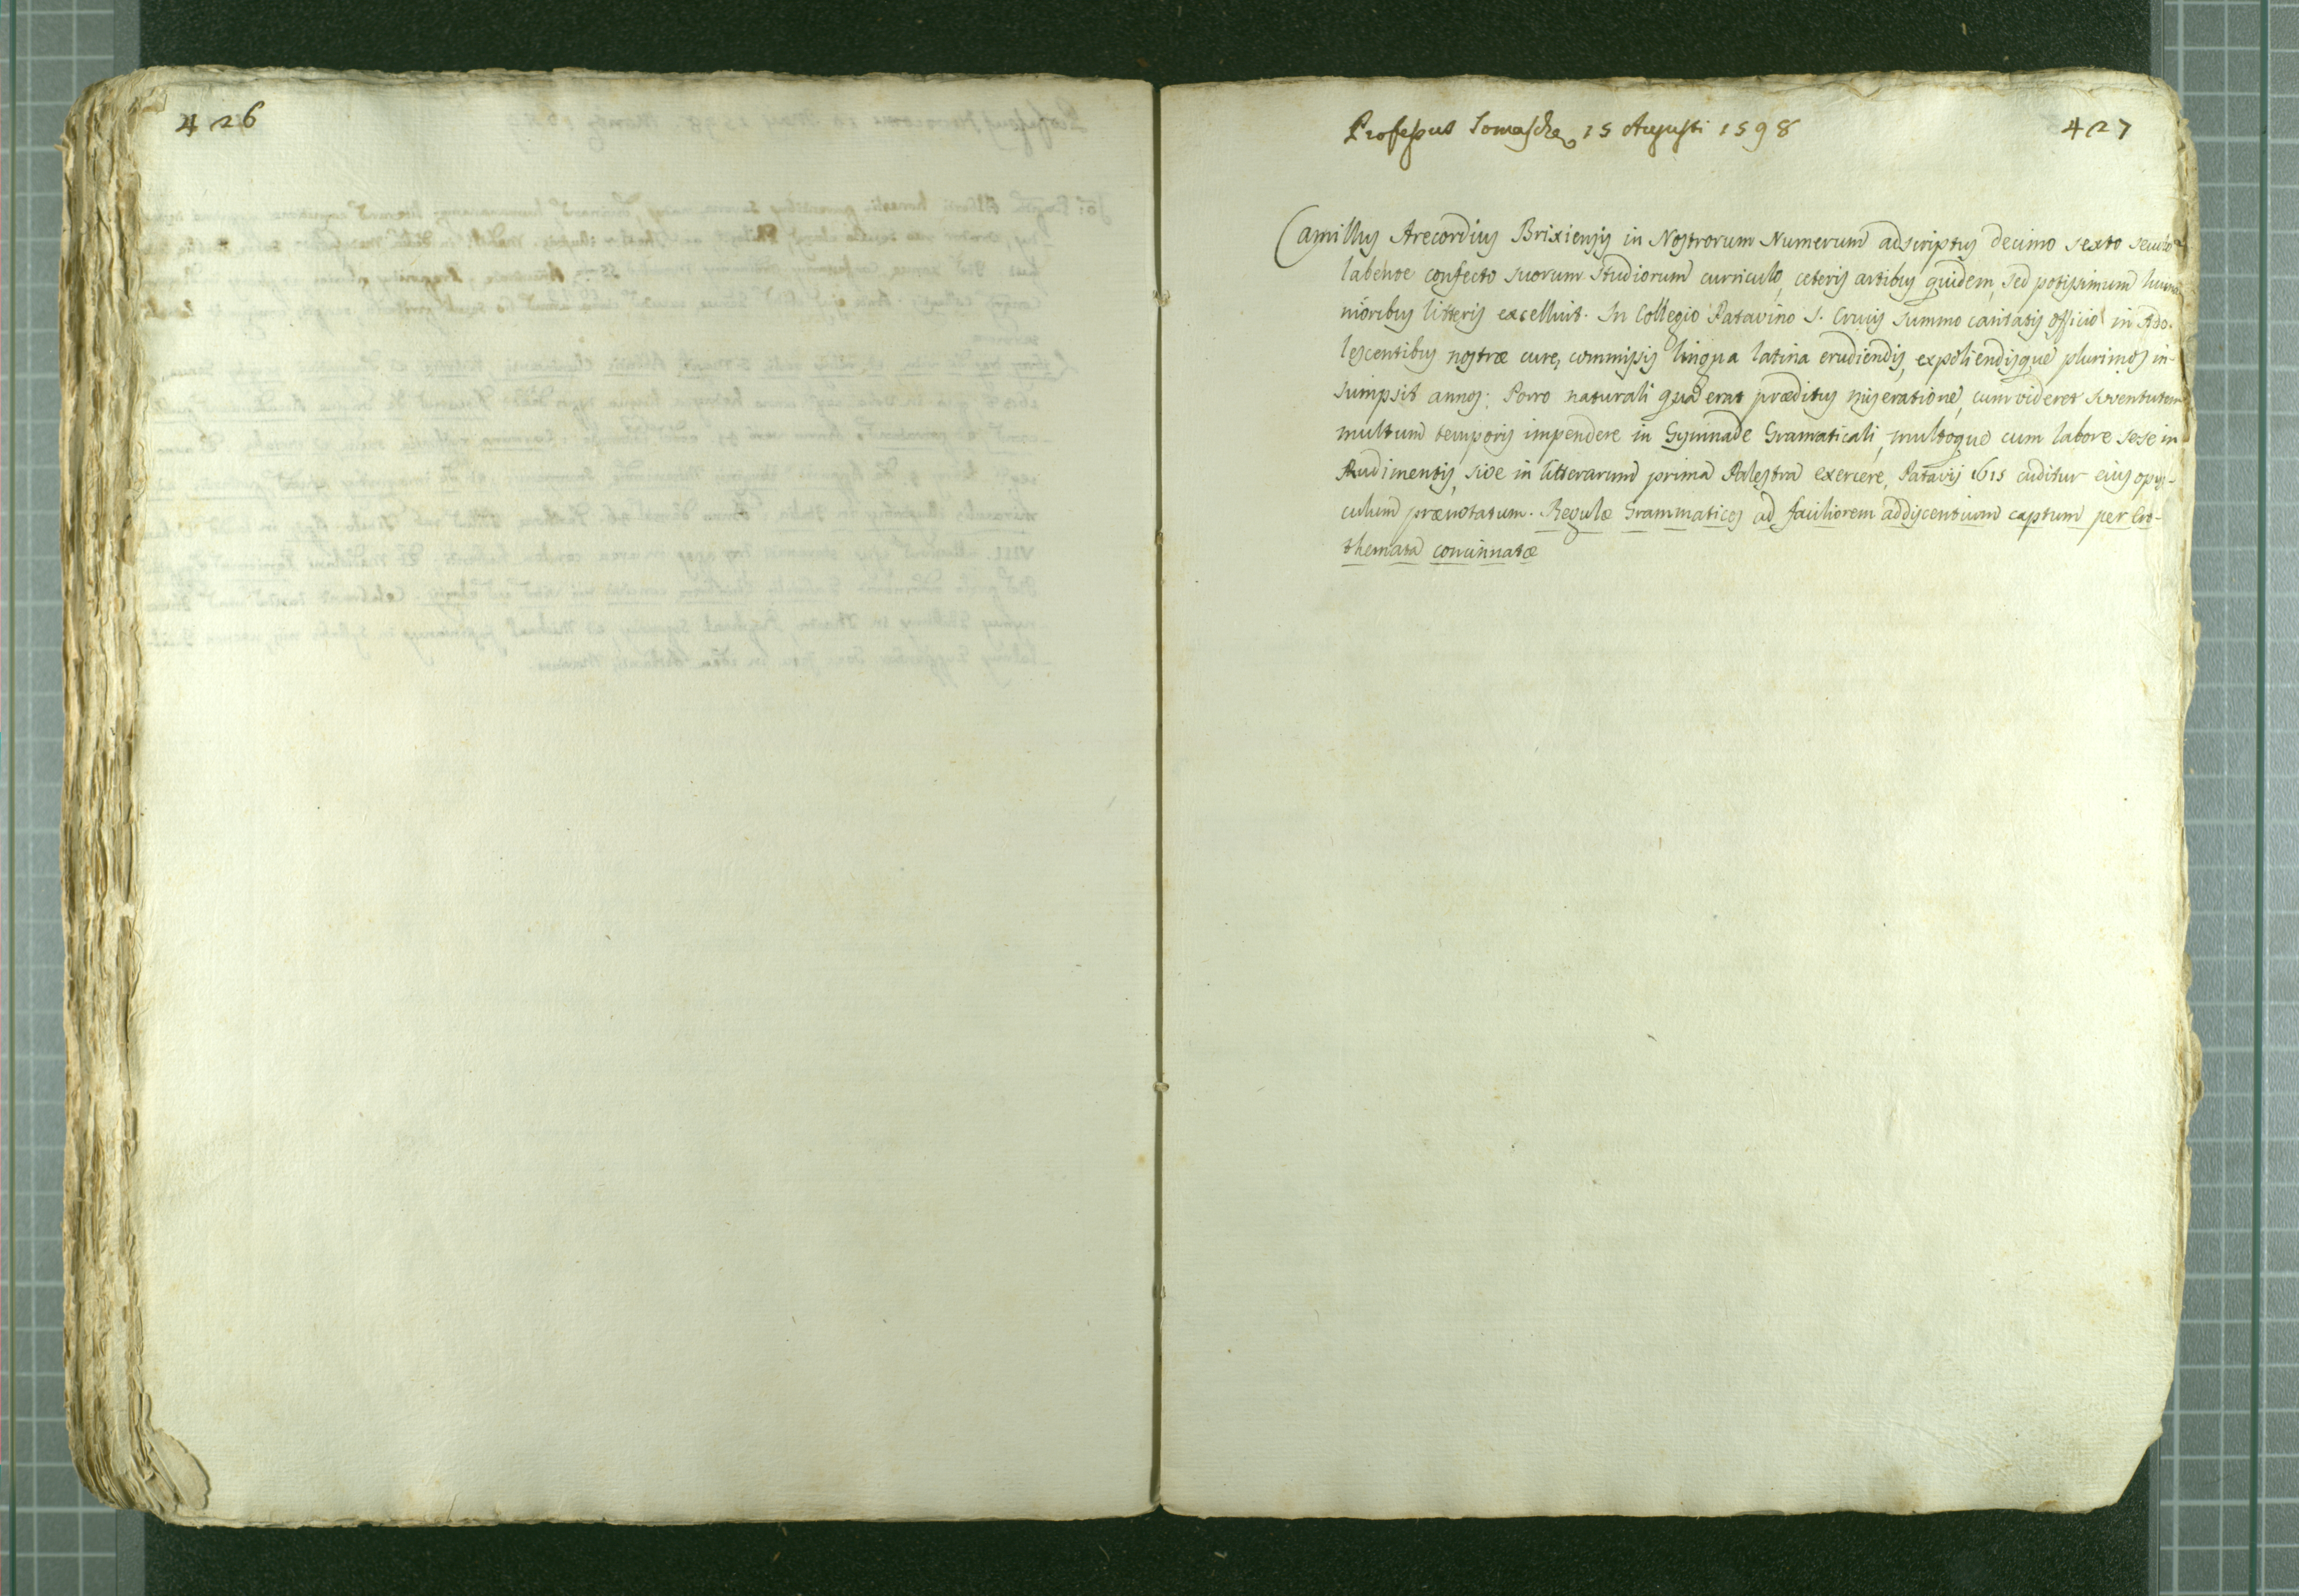 426
Professus Somaschæ 15 Augusti 1598
427
Camillus Arecordius Brixiensis in Nostrorum Numerum adscriptus decimo sexto seculo
labente confecto suorum studiorum curriculo, ceteris artibus quidem, sed potissimum huma
nioribus litteris excelluit. In Collegio Patavino S. Crucis summo caritatis officio in Ado-
lescentibus nostræ cure, commissis lingua latina erudiendis, expoliendisque plurimos in-
sumpsit annos. Porro naturali qua erat præditus miseratione, cum videret Iuventutem
multum temporis impendere in Gymnade Gramaticali, multoque cum labore sese in
Rudimentis, sive in litterarum prima Palestra exercere, Patavij 1615 cuditur eius opus-
culum prænotatum. Regulæ Grammatices ad faciliorem addiscentium captum per Ero-
themata concinnatæ